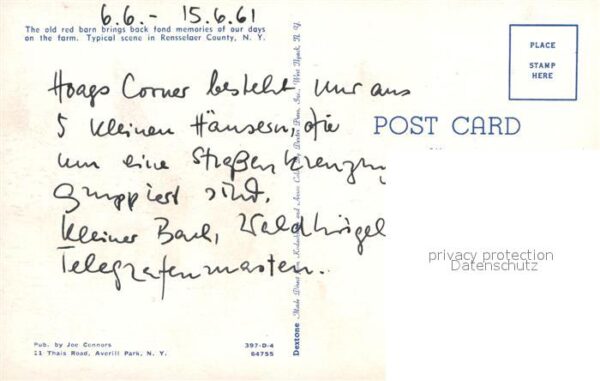 6.6.- 15.6.61
The old red barn brings back fond memories of our days
on the farm. Typical scene in Rensselaer County, N. Y.
Hoags Corner besteht nur aus
5 kleinen Häusern, die
um eine Straßenkreuzung
gruppiert sind.
Kleiner Bach, Waldhügel
Telegrafenmasten.
PLACE
STAMP
HERE
POST CARD
privacy protection
Datenschutz
Dextone Made Direct from Kodachrome and Ansco Color by Dexter Press, Inc., West Nyack, N. Y.
Pub. by Joe Connors
11 Thais Road, Averill Park, N. Y.
397-D-4
64755